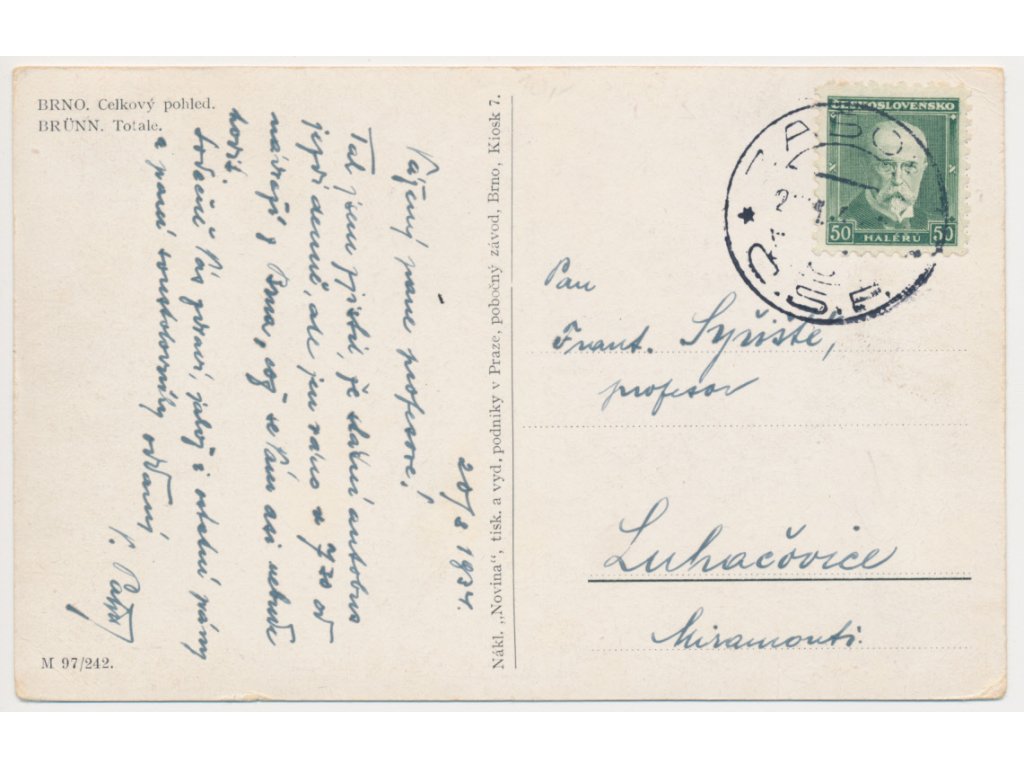 BRNO. Celkový pohled.
BRÜNN. Totale.
20/8 1934.
Vážený pane profesore!
Tak jsem zjistil, že státní autobus
jezdí denně, ale jen ráno v 7,20 od
nádraží z Brna, což se Vám asi nebude
hodit.
Srdečně Vás zdraví, jakož i ostatní pány
a paní
oddaný
M 97/242.
Nákl. „Novina“, tisk. a vyd. podniky v Praze, pobočný závod, Brno, Kiosk 7.
ČESKOSLOVENSKO
50 HALÉŘŮ 50
Pan
Frant. Syřiště,
profesor
Luhačovice
Miramonti.